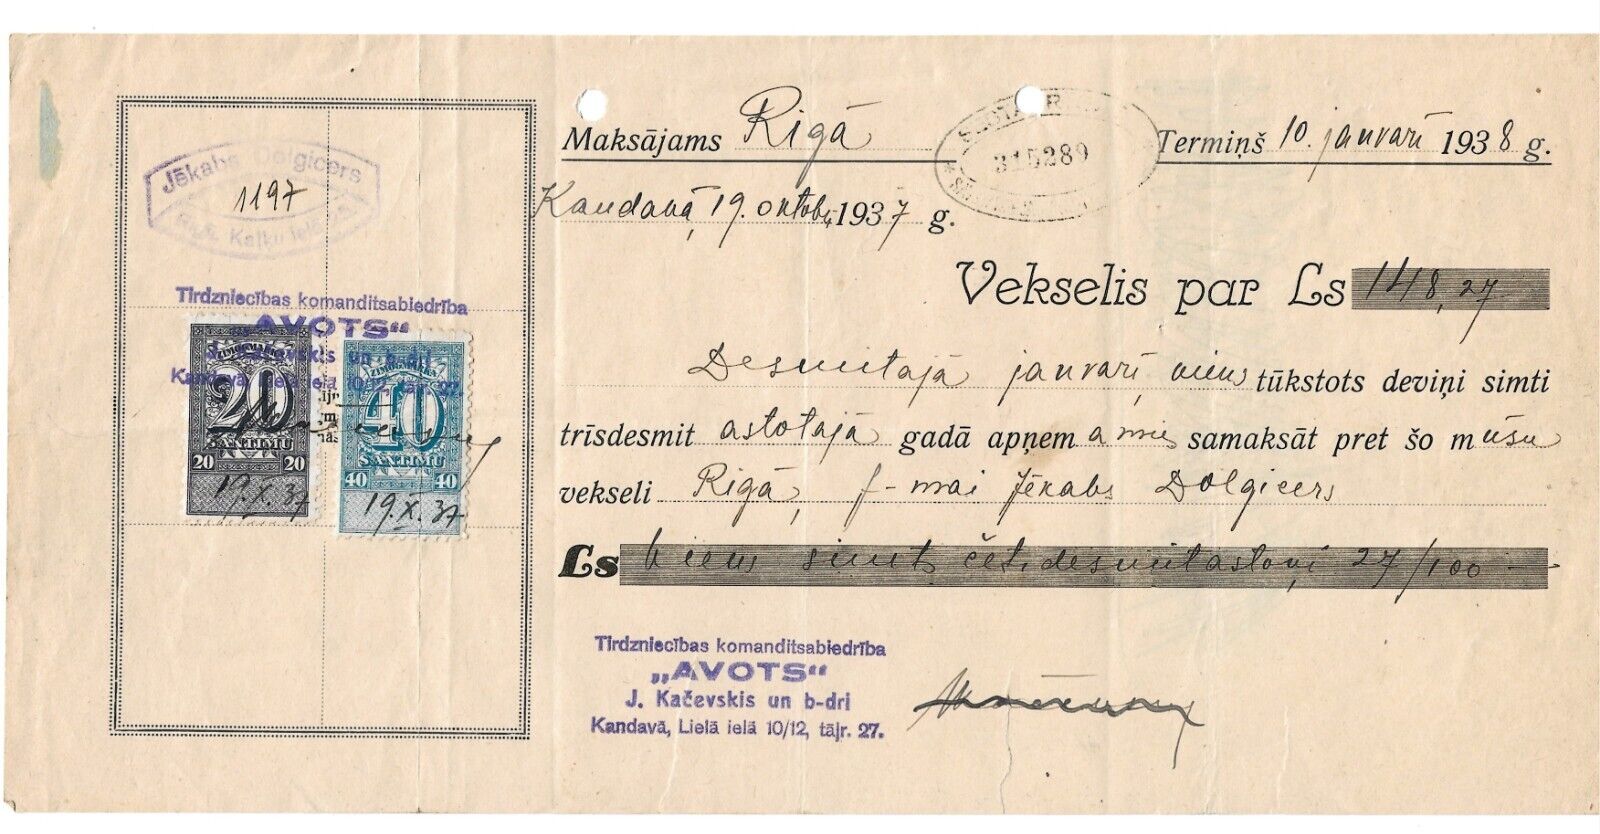 Jēkabs Dolgicers
1197
Kaļķu ielā
Tirdzniecības komanditsabiedrība
„AVOTS“
J. Kačevskis un b-dri
Kandavā, Lielā ielā 10/12, tālr. 27.
ZIMOGMARKA
20
SANTIMU
20 20
19.X.37
ZIMOGMARKA
40
SANTIMU
40 40
19.X.37
Maksājams Rigā
315289
Termiņš 10. janvarī 1938 g.
Kandavā, 19. oktobr. 1937 g.
Vekselis par Ls 148,27
Desmitajā janvarī, viens tūkstots deviņi simti
trīsdesmit astotajā gadā apņemamies samaksāt pret šo mūsu
vekseli Rigā, f-mai Jēkabs Dolgicers
Ls Viens simts četrdesmitastoņi 27/100 —
Tirdzniecības komanditsabiedrība
„AVOTS“
J. Kačevskis un b-dri
Kandavā, Lielā ielā 10/12, tālr. 27.